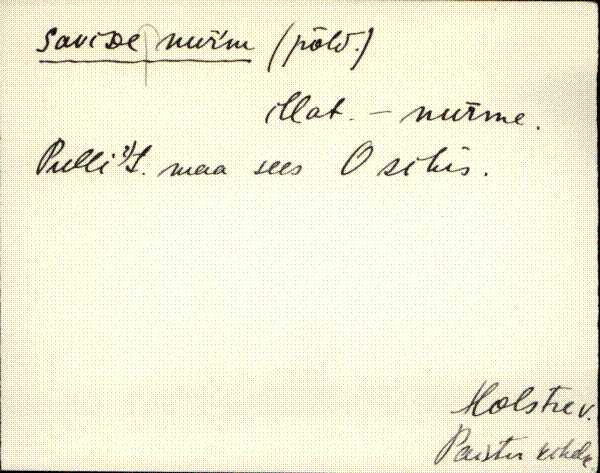 Savide nurm (põld.)
illat. – nurme.
Pulli t. maa sees O sihis.
Holstre v.
Paistu kihelk.